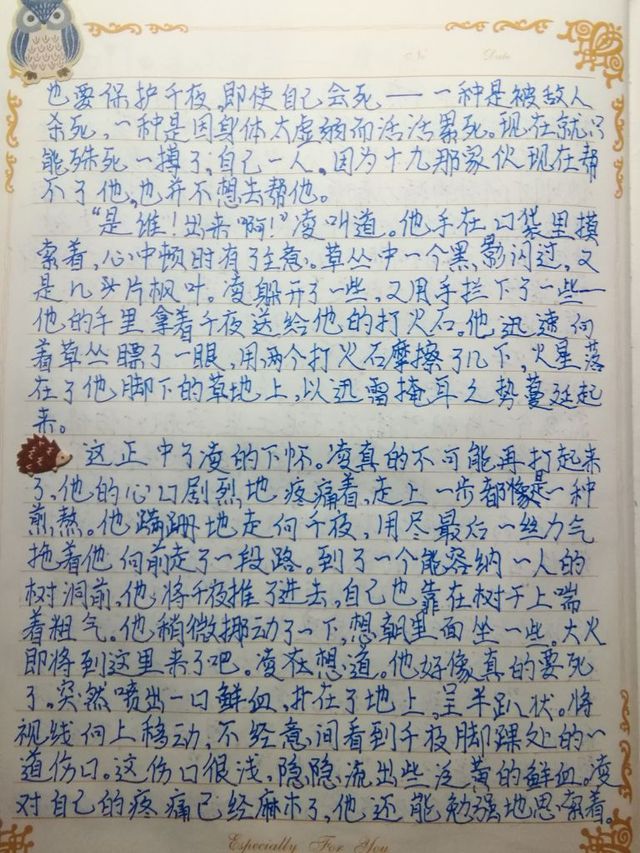 No
Date
也要保护千夜,即使自己会死——一种是被敌人
杀死,一种是因身体太虚弱而活活累死。现在就只
能殊死一搏了,自己一人。因为十九那家伙现在帮
不了他,也并不想去帮他。
“是谁!出来啊!”凌叫道。他手在口袋里摸
索着,心中顿时有了主意。草丛中一个黑影闪过,又
是几片枫叶。凌躲开了一些,又用手拦下了一些——
他的手里拿着千夜送给他的打火石。他迅速向
着草丛瞟了一眼,用两个打火石摩擦了几下,火星落
在了他脚下的草地上,以迅雷掩耳之势蔓延起
来。
这正中了凌的下怀。凌真的不可能再打起来
了,他的心口剧烈地疼痛着,走上一步都像是一种
煎熬。他蹒跚地走向千夜,用尽最后一丝力气
拖着他向前走了一段路。到了一个能容纳一人的
树洞前,他将千夜推了进去,自己也靠在树干上喘
着粗气。他稍微挪动了一下,想朝里面坐一些。大火
即将到这里来了吧。凌在想道。他好像真的要死
了。突然喷出一口鲜血,扑在了地上,呈半趴状。将
视线向上移动,不经意间看到千夜脚踝处的一
道伤口。这伤口很浅,隐隐流出些泛黄的鲜血。凌
对自己的疼痛已经麻木了,他还能勉强地思索着。
Especially For You